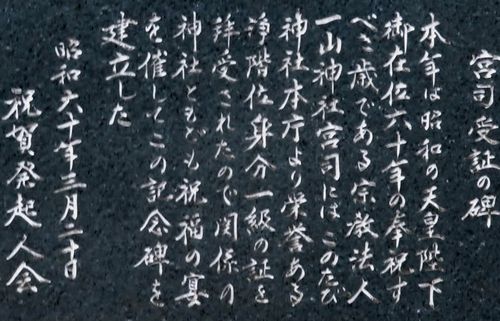 宮司受証の碑
本年は昭和の天皇陛下
御在位六十年の奉祝す
べき歳である宗教法人
一山神社宮司にはこのたび
神社本庁より栄誉ある
浄階位身分一級の証を
拝受されたので関係の
神社ともども祝福の宴
を催してこの記念碑を
建立した
昭和六十年三月二十日
祝賀発起人会